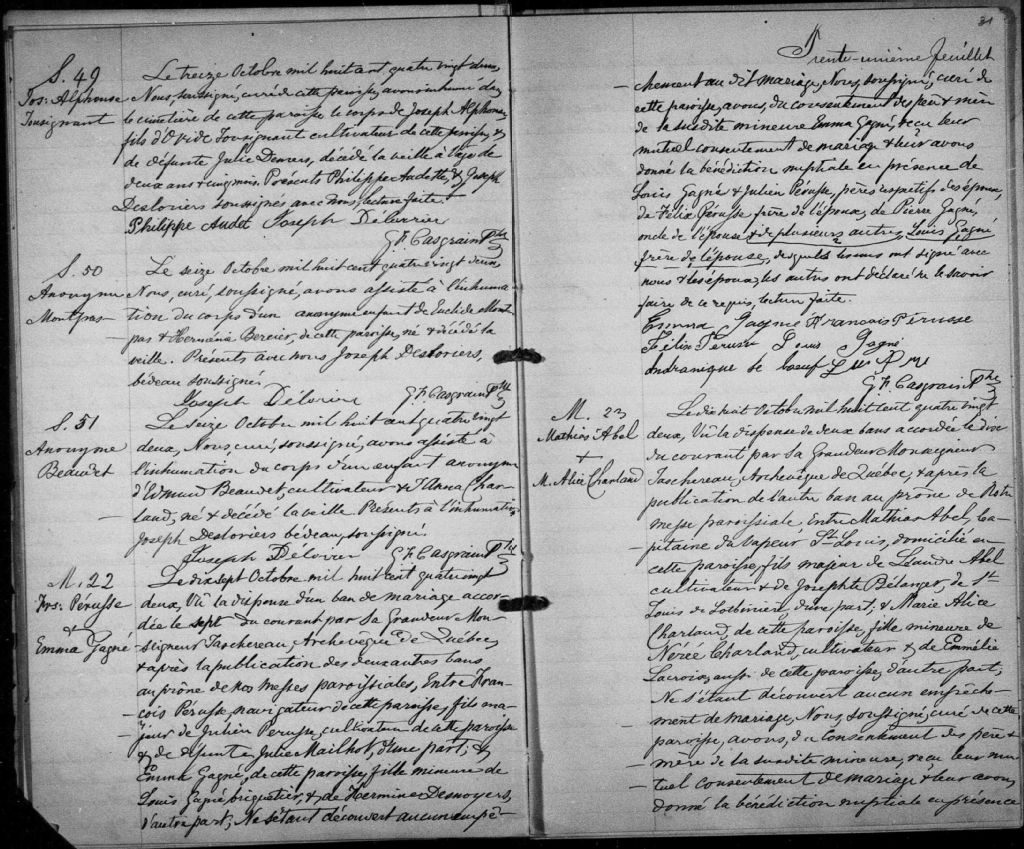 S. 49
Jos: Alphonse
Tousignant
Le treize Octobre mil huit cent quatre vingt deux,
Nous, soussigné, curé de cette paroisse, avons inhumé dans
le cimetière de cette paroisse le corps de Joseph Alphonse,
fils d'Ovide Tousignant cultivateur de cette paroisse, &
de défunte Julie Demers, décédé la veille à l'age de
deux ans & cinq mois. Présents Philippe Audette, & Joseph
Desloriers soussignés avec Nous, lecture faite.
Philippe Audet Joseph Délorier
G F. Casgrain Ptre
S. 50
Anonyme
Montpas
Le seize Octobre mil huit cent quatre vingt deux,
Nous, curé, soussigné, avons assisté à l'inhuma-
tion du corps d'un anonyme enfant de Euclide Mont-
pas & Herménie Bercier, de cette paroisse, né & décédé la
veille. Présents avec nous Joseph Desloriers,
bédeau soussigné
Joseph Délorier G F. Casgrain Ptre
S. 51
Anonyme
Beaudet
Le Seize Octobre mil huit cent quatre vingt
deux, Nous, curé, soussigné, avons assisté à
l'inhumation du corps d'un enfant anonyme
d'Edmund Beaudet, cultivateur & d'Anna Char-
land, né & décédé la veille Présents à l'inhumation
Joseph Desloriers bédeau, soussigné
Joseph Délorier G F. Casgrain Ptre
M. 22
Frs: Pérusse
&
Emma Gagné
Le dix sept Octobre mil huit cent quatre vingt
deux, Vû la dispense d'un ban de mariage accor-
dée le sept du courant par Sa Grandeur Mon-
seigneur Taschereau, Archevêque de Québec,
& après la publication des deux autres bans
au prône de nos messes paroissiales, Entre Fran-
çois Pérusse, navigateur de cette paroisse, fils ma-
jeur de Julien Pérusse, cultivateur de cette paroisse
& de défunte Julie Mailhot, d'une part; &
Emma Gagné, de cette paroisse, fille mineure de
Louis Gagné briquetier, & de Hermine Desnoyers,
d'autre part; Ne s'étant découvert aucun empê-
31
Trente-unième feuillet
chement au dit mariage, Nous, soussigné, curé de
cette paroisse, avons, du consentement des père & mère
de la susdite mineure Emma Gagné, reçu leur
mutuel consentement de mariage & leur avons
donné la bénédiction nuptiale en présence de
Louis Gagné & Julien Pérusse, pères respectifs des époux,
de Félix Pérusse frère de l'époux, de Pierre Gagné,
oncle de l'épouse & de plusieurs autres, Louis Gagné
frère de l'épouse, desquels les uns ont signé avec
nous & les époux; les autres ont déclaré ne le savoir
faire de ce requis, lecture faite.
Emma Gagnie Francois Pérusse
Félix Perusse Louis Gagné
Andranique be boeuf
G F. Casgrain Ptre
M. 23
Mathias Abel
+
M. Alice Charland
Le dix huit Octobre mil huit cent quatre vingt
deux, Vû la dispense de deux bans accordée le dix
du courant par Sa Grandeur Monseigneur
Taschereau, Archevêque de Québec, & après la
publication de l'autre ban au prône de Notre
messe paroissiale, Entre Mathias Abel, Ca-
pitaine du Vapeur St Louis, domicilié en
cette paroisse, fils majeur de Léandre Abel
cultivateur & de Josephte Bélanger, de St
Louis de Lotbinière, d'une part; & Marie Alice
Charland, de cette paroisse, fille mineure de
Nérée Charland, cultivateur & de Emmélie
Lauzois, aussi de cette paroisse, d'autre part;
Ne s'étant découvert aucun empêche-
ment de mariage, Nous, Soussigné, curé de cette
paroisse, avons, du Consentement des père &
mère de la susdite mineure, reçu leur mu-
tuel consentement de mariage & leur avons
donné la bénédiction nuptiale en présence